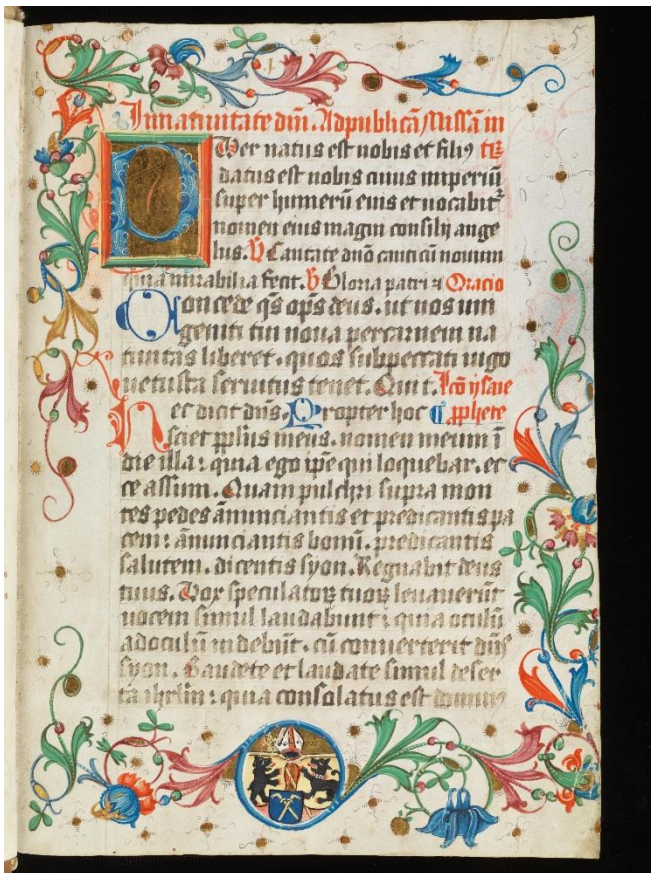 5
In natiuitate dn̄i. Ad publicā Missā in
Puer natus est nobis et filiꝯ tꝝ
datus est nobis cuius imperiū
super humerū eius et uocabit᷑
nomen eius magni consilij ange
lus. V Cantate dn̄o canticū nouum
quia mirabilia fecit. V Gloria patri ⁊ Oracio
Concede qs̄ op̄s deus. ut nos uni
geniti tui noua per carnem na
tiuitas liberet. quos sub peccati iugo
uetusta seruitus tenet. Qui t. Lcō ysaie
Hec dicit dn̄s. Propter hoc pphete
sciet ppl̄us meus. nomen meum ī
die illa: quia ego ip̄e qui loquebar. ec
ce assum. Quam pulchri supra mon
tes pedes ānunciantis et predicantis pa
cem: ānunciantis bonū. predicantis
salutem. dicentis syon. Regnabit deus
tuus. Vox speculatoꝝ tuoꝝ leuauerūt
uocem simul laudabunt: quia oculū
ad oculū uidebūt. cū conuerterit dn̄s
syon. Gaudete et laudate simul deser
ta ihrl̄m: quia consolatus est dominꝯ